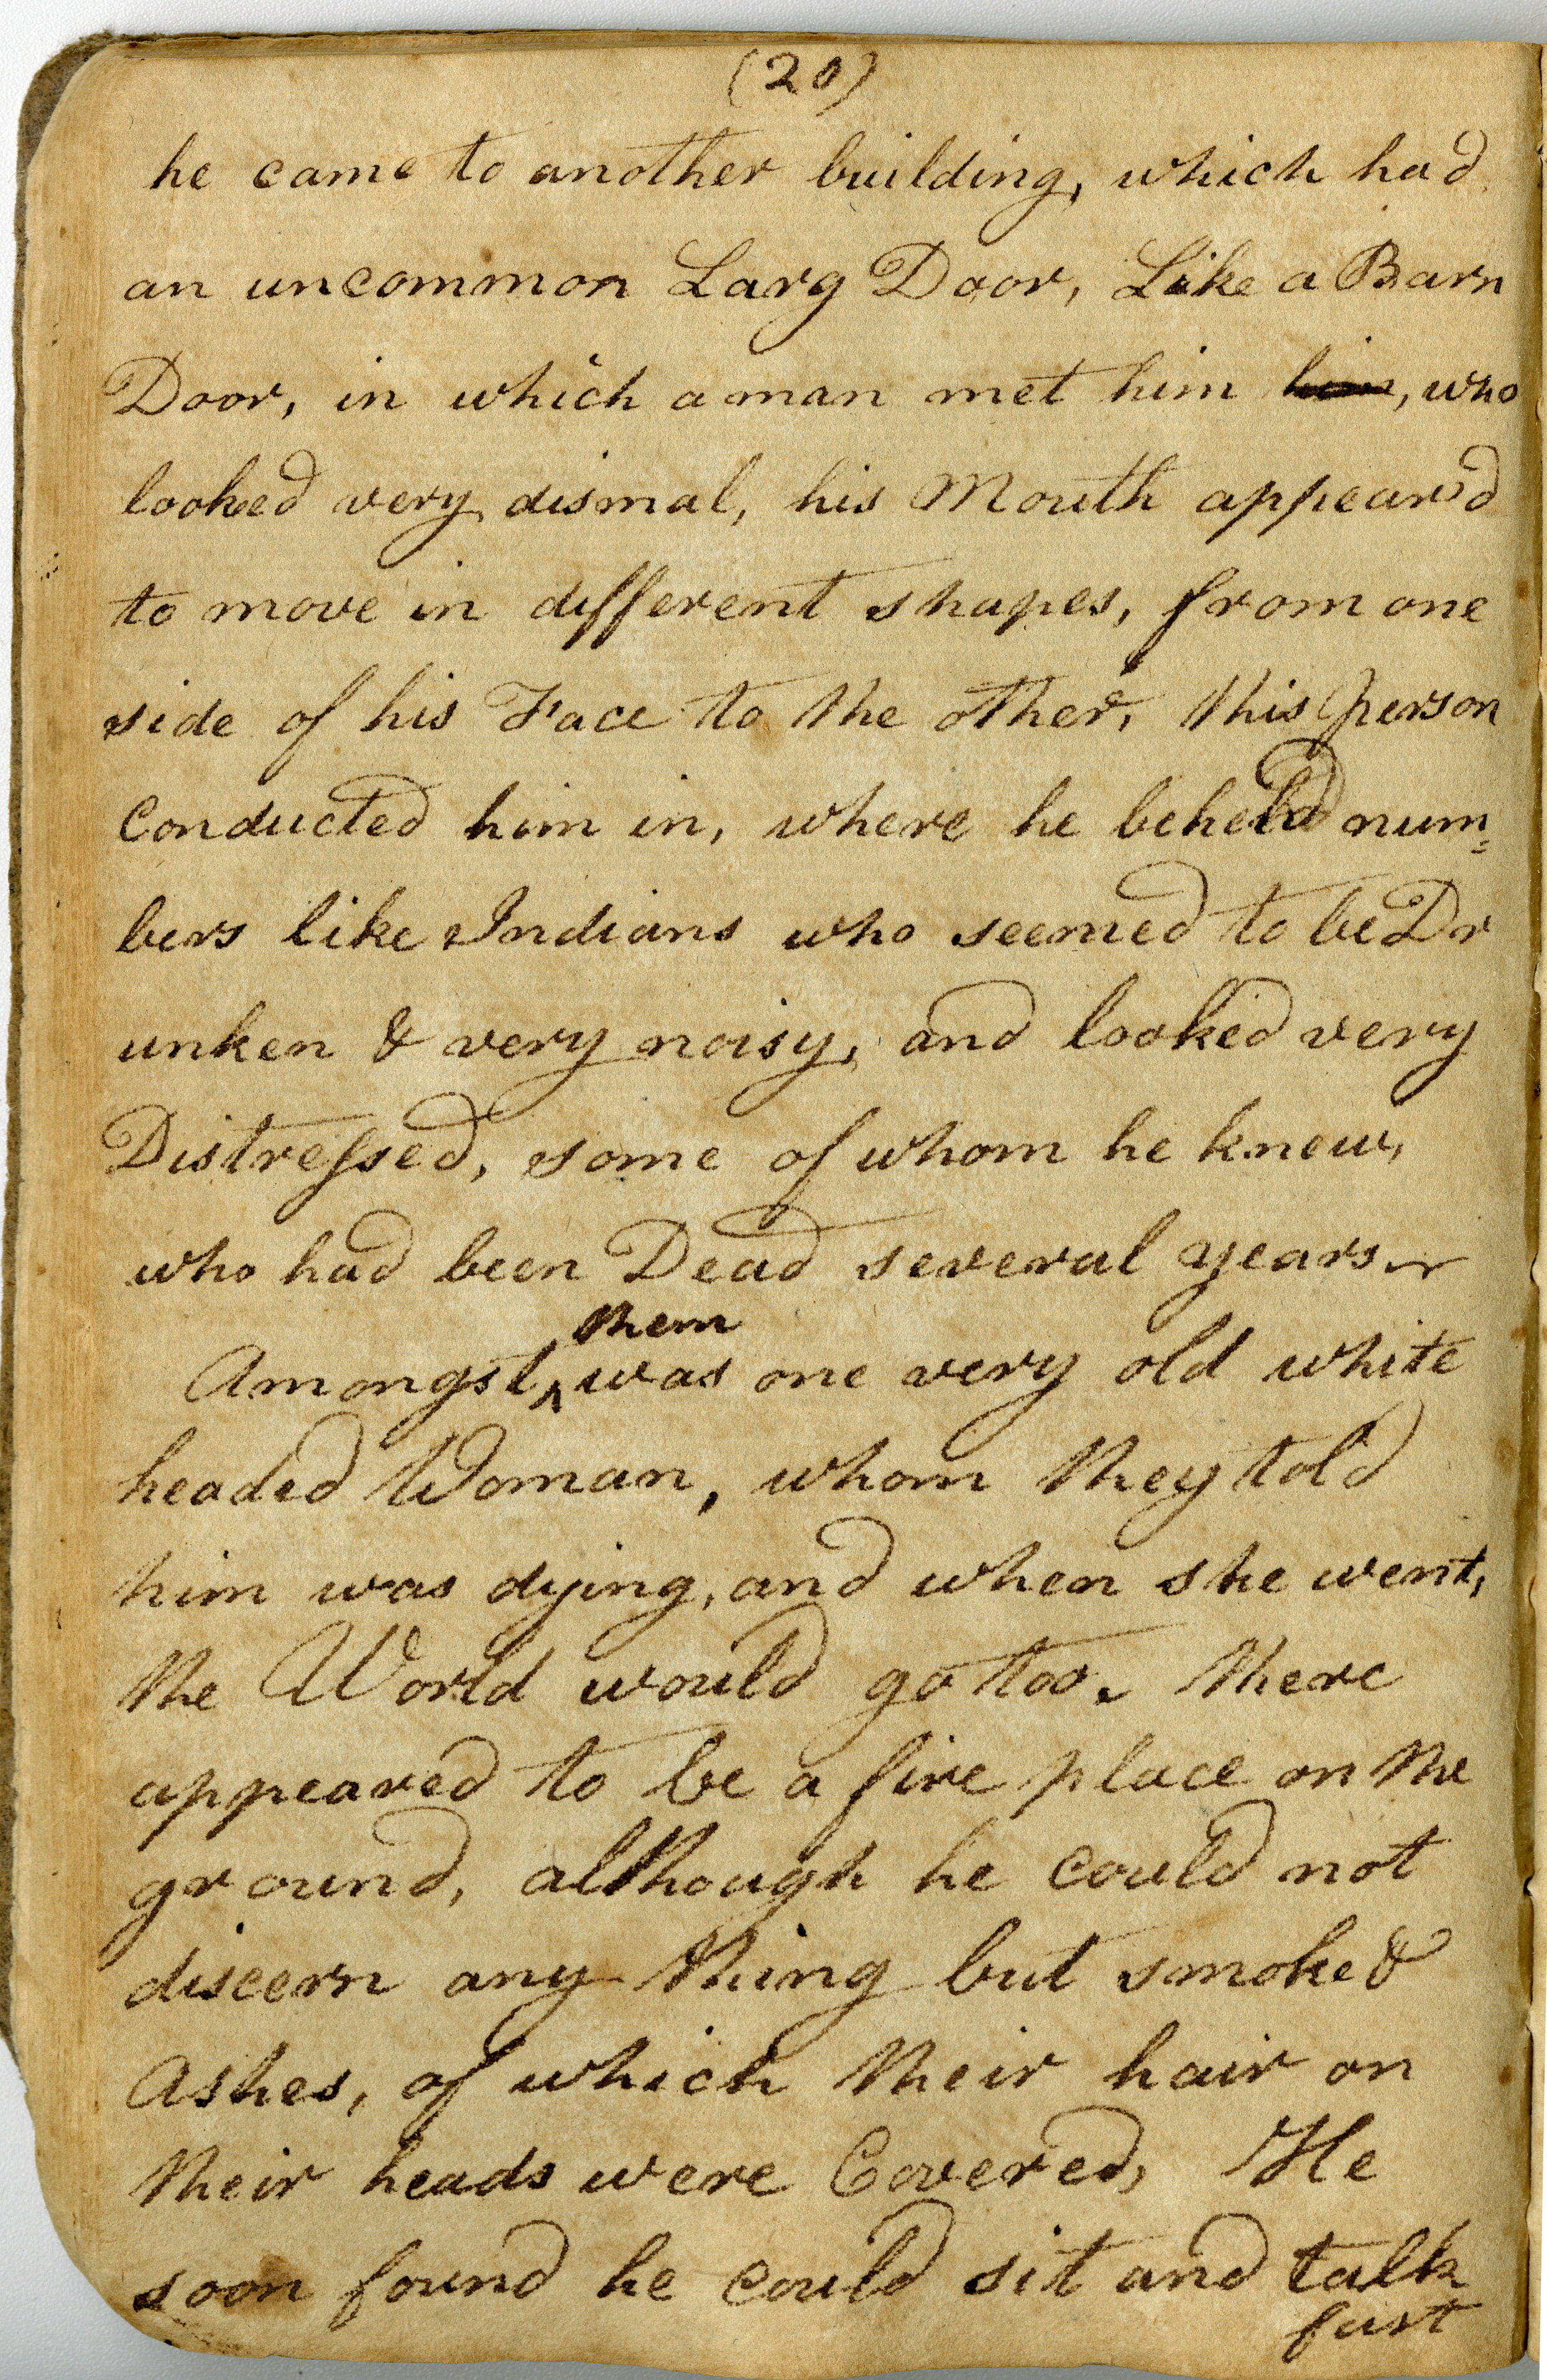 (20)
he came to another building, which had
an uncommon Larg Door, Like a Barn
Door, in which a man met him him, who
looked very dismal, his Mouth appear'd
to move in different shapes, from one
side of his Face to the other, this person
Conducted him in, where he beheld num=
bers like Indians who seemed to be Dr
unken & very noisy, and looked very
Distressed, some of whom he knew,
who had been Dead several years.
them
Amongst ^ was one very old white
headed Woman, whom they told
him was dying, and when she went,
the World would go too. there
appeared to be a fire place on the
ground, although he could not
discern any thing but smoke &
Ashes, of which their hair on
their heads were Covered, He
soon found he could sit and talk
fast